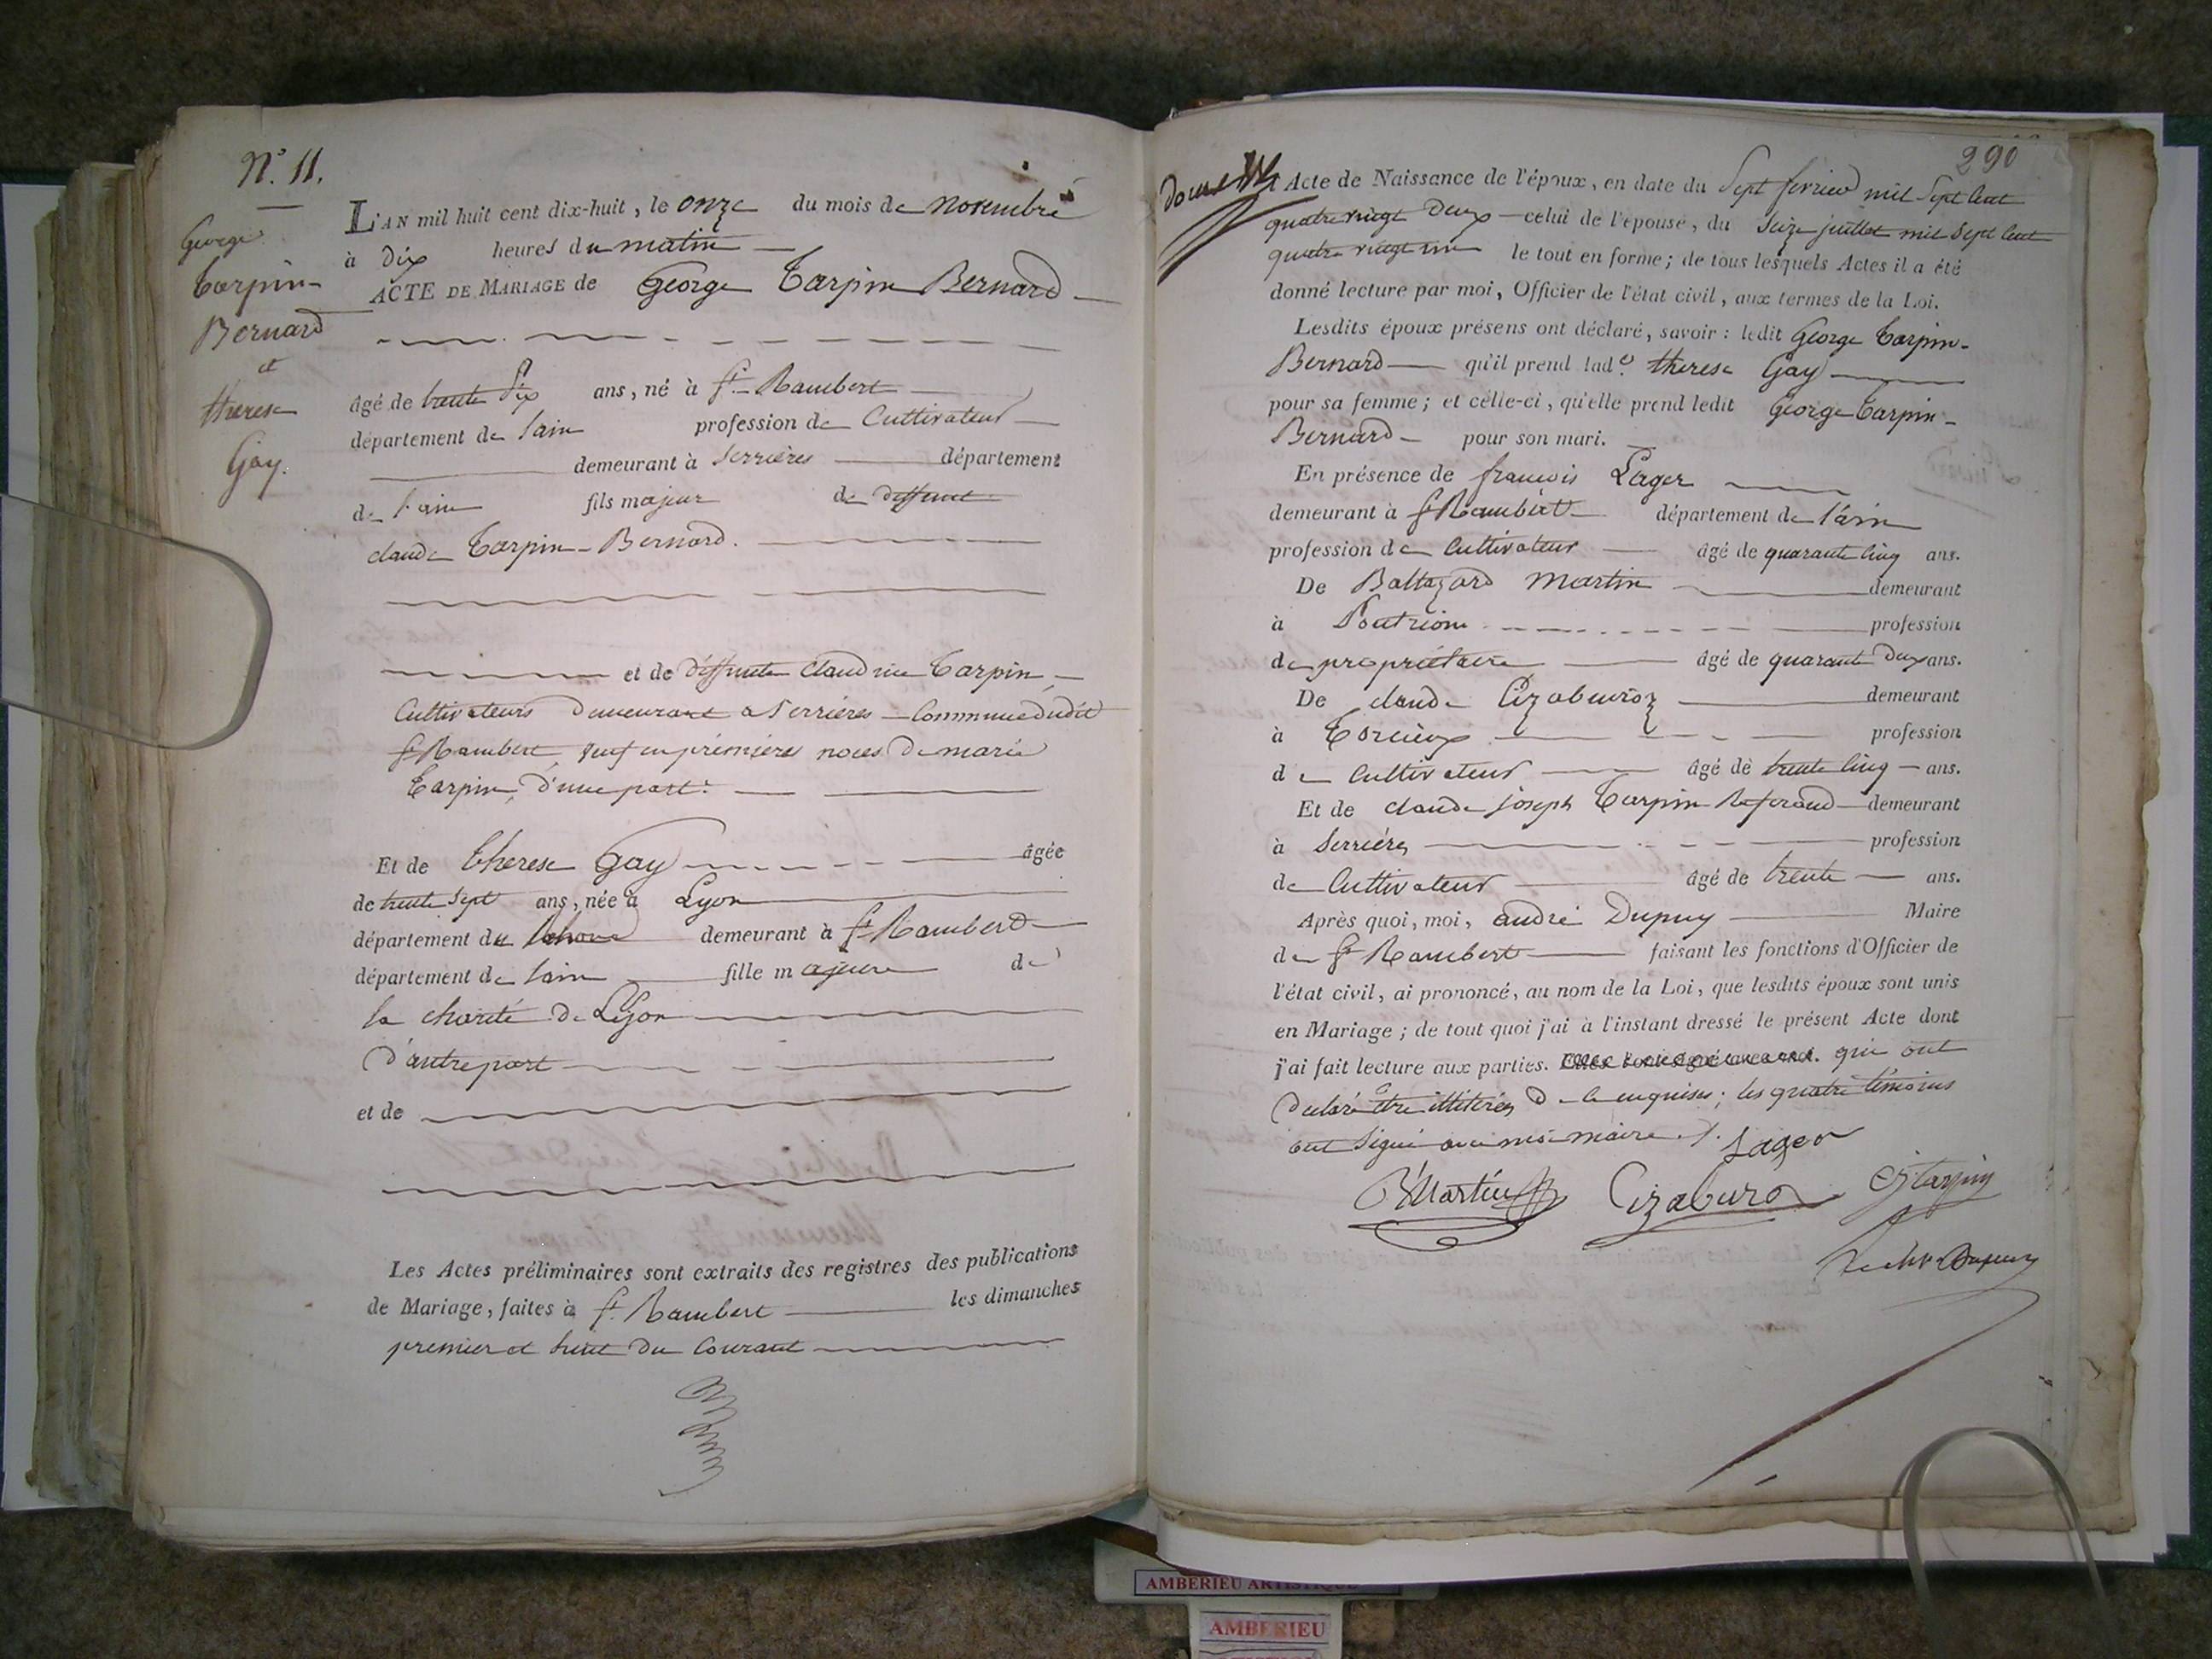 N.° 11.
George
Tarpin-
Bernard
et
therese
Gay.
L'AN mil huit cent dix-huit, le onze du mois de novembre
à dix heures du matin
ACTE DE MARIAGE de George Tarpin Bernard
âgé de trente six ans, né à St. Rambert
département de l'ain profession de Cultivateur
demeurant à Serrières département
de l'ain fils majeur de deffunt
claude Tarpin-Bernard.
et de deffunte claudine Tarpin,
Cultivateurs demeurant a Serrières Commune dudit
St Rambert, veuf en prémières noces de marie
Tarpin, d'une part:
Et de therese Gay âgée
de trente sept ans, née à Lyon
département du Rhone demeurant à St Rambert
département de l'ain fille majeure de
la charité de Lyon
d'autre part
et de
Les Actes préliminaires sont extraits des registres des publications
de Mariage, faites à St. Rambert les dimanches
premier et huit du Courant
290
Acte de Naissance de l'époux, en date du Sept fevrier mil Sept Cent
quatre vingt deux celui de l'épouse, du Seize juillet mil Sept Cent
quatre vingt un le tout en forme; de tous lesquels Actes il a été
donné lecture par moi, Officier de l'état civil, aux termes de la Loi.
Lesdits époux présens ont déclaré, savoir: ledit George Tarpin-
Bernard qu'il prend lad.e therese Gay
pour sa femme; et celle-ci, qu'elle prend ledit George Tarpin-
Bernard pour son mari.
En présence de francois Lager
demeurant à St Rambert département de l'ain
profession de Cultivateur âgé de quarante Cinq ans.
De Baltazard Martin demeurant
à profession
de propriétaire âgé de quarante deux ans.
De claude Cizabuiroz demeurant
à Torcieux profession
de Cultivateur âgé de trente Cinq ans.
Et de claude joseph Tarpin Referand demeurant
à Serrières profession
de Cultivateur âgé de trente ans.
Après quoi, moi, andré Dupuy Maire
de St Rambert faisant les fonctions d'Officier de
l'état civil, ai prononcé, au nom de la Loi, que lesdits époux sont unis
en Mariage; de tout quoi j'ai à l'instant dressé le présent Acte dont
j'ai fait lecture aux parties. qui ont
declaré être illitérés de ce enquises; les quatre témoins
ont Signé avec moi maire ./. Lager
B Martin Cizaburo Cj tarpin
Dupuy
AMBERIEU ARTISTIQUE
AMBERIEU